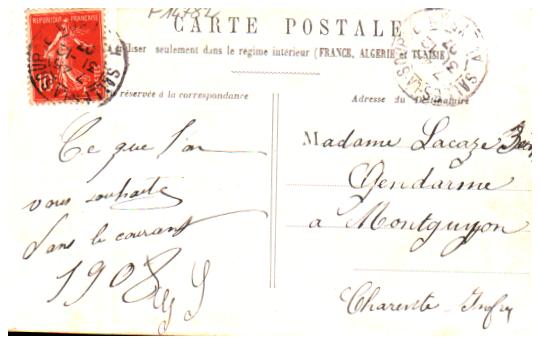 CARTE POSTALE
à utiliser seulement dans le régime intérieur (FRANCE, ALGERIE et TUNISIE)
réservée à la correspondance
Adresse du Destinataire
RÉPUBLIQUE FRANÇAISE
Ce que l'on
vous souhaite
dans le courant
1908
Madame Lacaze
Gendarme
a Montguyon
Charente-Infre